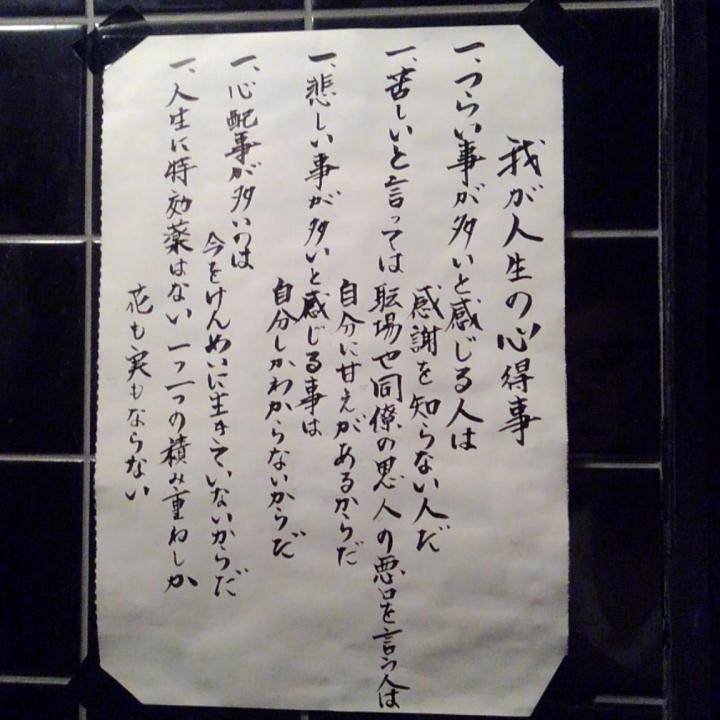 我が人生の心得事
一、つらい事が多いと感じる人は
感謝を知らない人だ
一、苦しいと言っては職場や同僚の思人の悪口を言う人は
自分に甘えがあるからだ
一、悲しい事が多いと感じる事は
自分しかわからないからだ
一、心配事が多いのは
今をけんめいに生きていないからだ
一、人生に特効薬はない一つ一つの積み重ねしか
花も実もならない